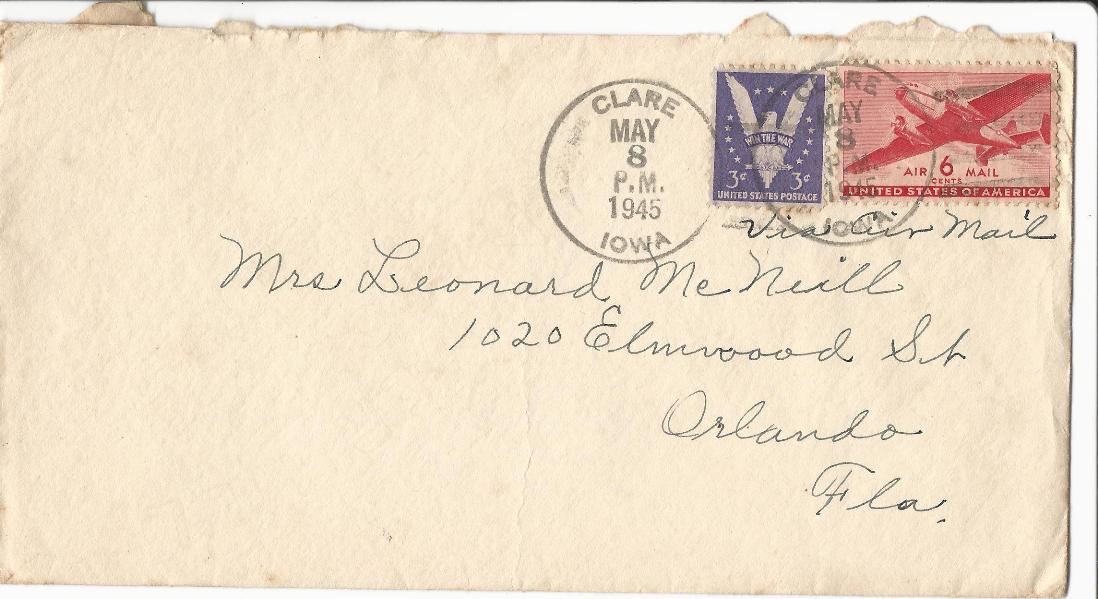 CLARE
MAY
8
P.M.
1945
IOWA
WIN THE WAR
3¢ 3¢
UNITED STATES POSTAGE
CLARE
MAY
8
P.M.
1945
IOWA
AIR 6 MAIL
CENTS
UNITED STATES OF AMERICA
Via Air Mail
Mrs Leonard McNeill
1020 Elmwoood St
Orlando
Fla.